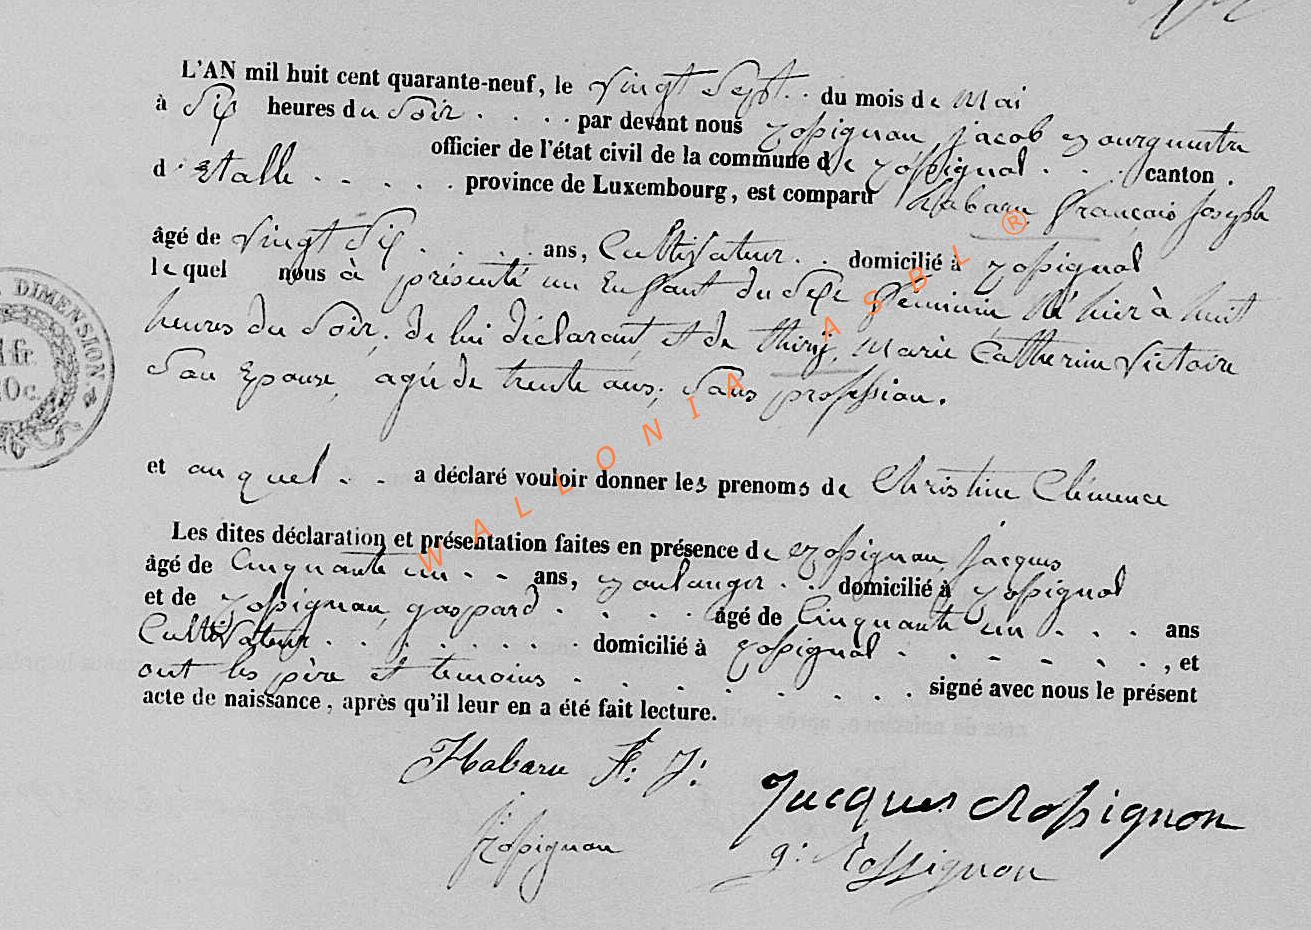 L'AN mil huit cent quarante-neuf, le vingt Sept . . du mois de Mai
à Six heures du Soir . . . . par devant nous Rossignon Jacob Bourgmestre
officier de l'état civil de la commune de Rossignol . . . canton
d'Etalle . . . . . province de Luxembourg, est comparu Habaru François Joseph
âgé de vingt Six . . . . ans, Cultivateur . . domicilié à Rossignol
lequel nous à présenté un Enfant du Sexe féminin né hier à huit
heures du Soir, de lui déclarant, et de Thiry, Marie Catherine Victoire
Son Epouse, agée de trente ans, Sans profession.
et auquel . . a déclaré vouloir donner les prenoms de Christine Clémence
Les dites déclaration et présentation faites en présence de Rossignon, Jacques
âgé de Cinquante un . . ans, Boulanger . . domicilié à Rossignol
et de Rossignon, gaspard . . . . . âgé de Cinquante un . . . ans
Cultivateur . . . . . . . domicilié à Rossignol . . . . . . , et
ont les père et temoins . . . . . . . . signé avec nous le présent
acte de naissance, après qu'il leur en a été fait lecture.
Habaru F. J.
Jacques Rossignon
J. Rossignon
g. Rossignon
DIMENSION
1 fr.
WALLONIA ASBL ®